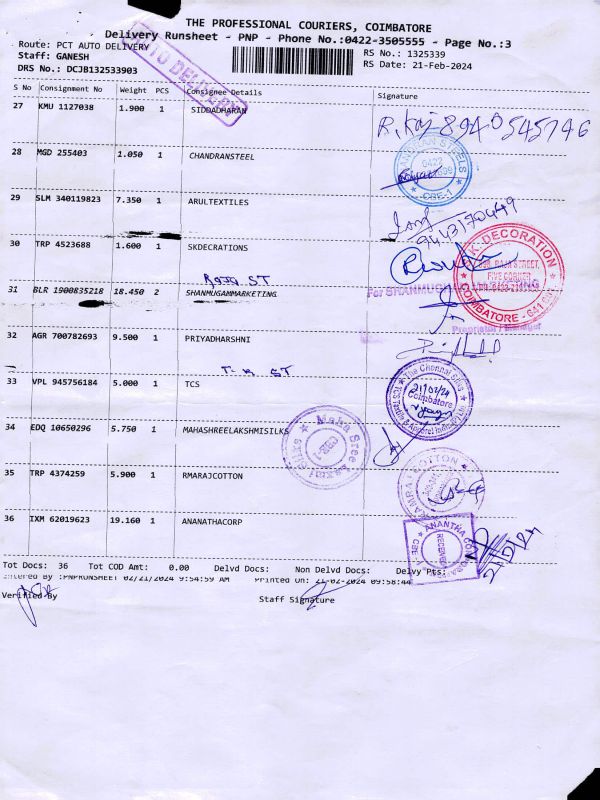 THE PROFESSIONAL COURIERS, COIMBATORE
Delivery Runsheet - PNP - Phone No.:0422-3505555 - Page No.:3
Route: PCT AUTO DELIVERY
RS No.: 1325339
Staff: GANESH
RS Date: 21-Feb-2024
DRS No.: DCJB132533903
AUTO DELIVERY
S No Consignment No Weight PCS Consignee Details Signature
27 KMU 1127038 1.900 1 SIDDADHARAN
28 MGD 255403 1.050 1 CHANDRANSTEEL
29 SLM 340119823 7.350 1 ARULTEXTILES
30 TRP 4523688 1.600 1 SKDECRATIONS
Raja ST
31 BLR 1900835218 18.450 2 SHANMUGAMMARKETING
32 AGR 700782693 9.500 1 PRIYADHARSHNI
T. K ST
33 VPL 945756184 5.000 1 TCS
The Chennai Silks
21/02/24
Coimbatore
34 EDQ 10650296 5.750 1 MAHASHREELAKSHMISILKS
35 TRP 4374259 5.900 1 RMARAJCOTTON
36 IXM 62019623 19.160 1 ANANATHACORP
RECEIVED
Tot Docs: 36 Tot COD Amt: 0.00 Delvd Docs: Non Delvd Docs: Delvy Pts:
Entered By :PNPRUNSHEET 02/21/2024 9:54:59 AM Printed On: 21-02-2024 09:58:44
Verified By
Staff Signature